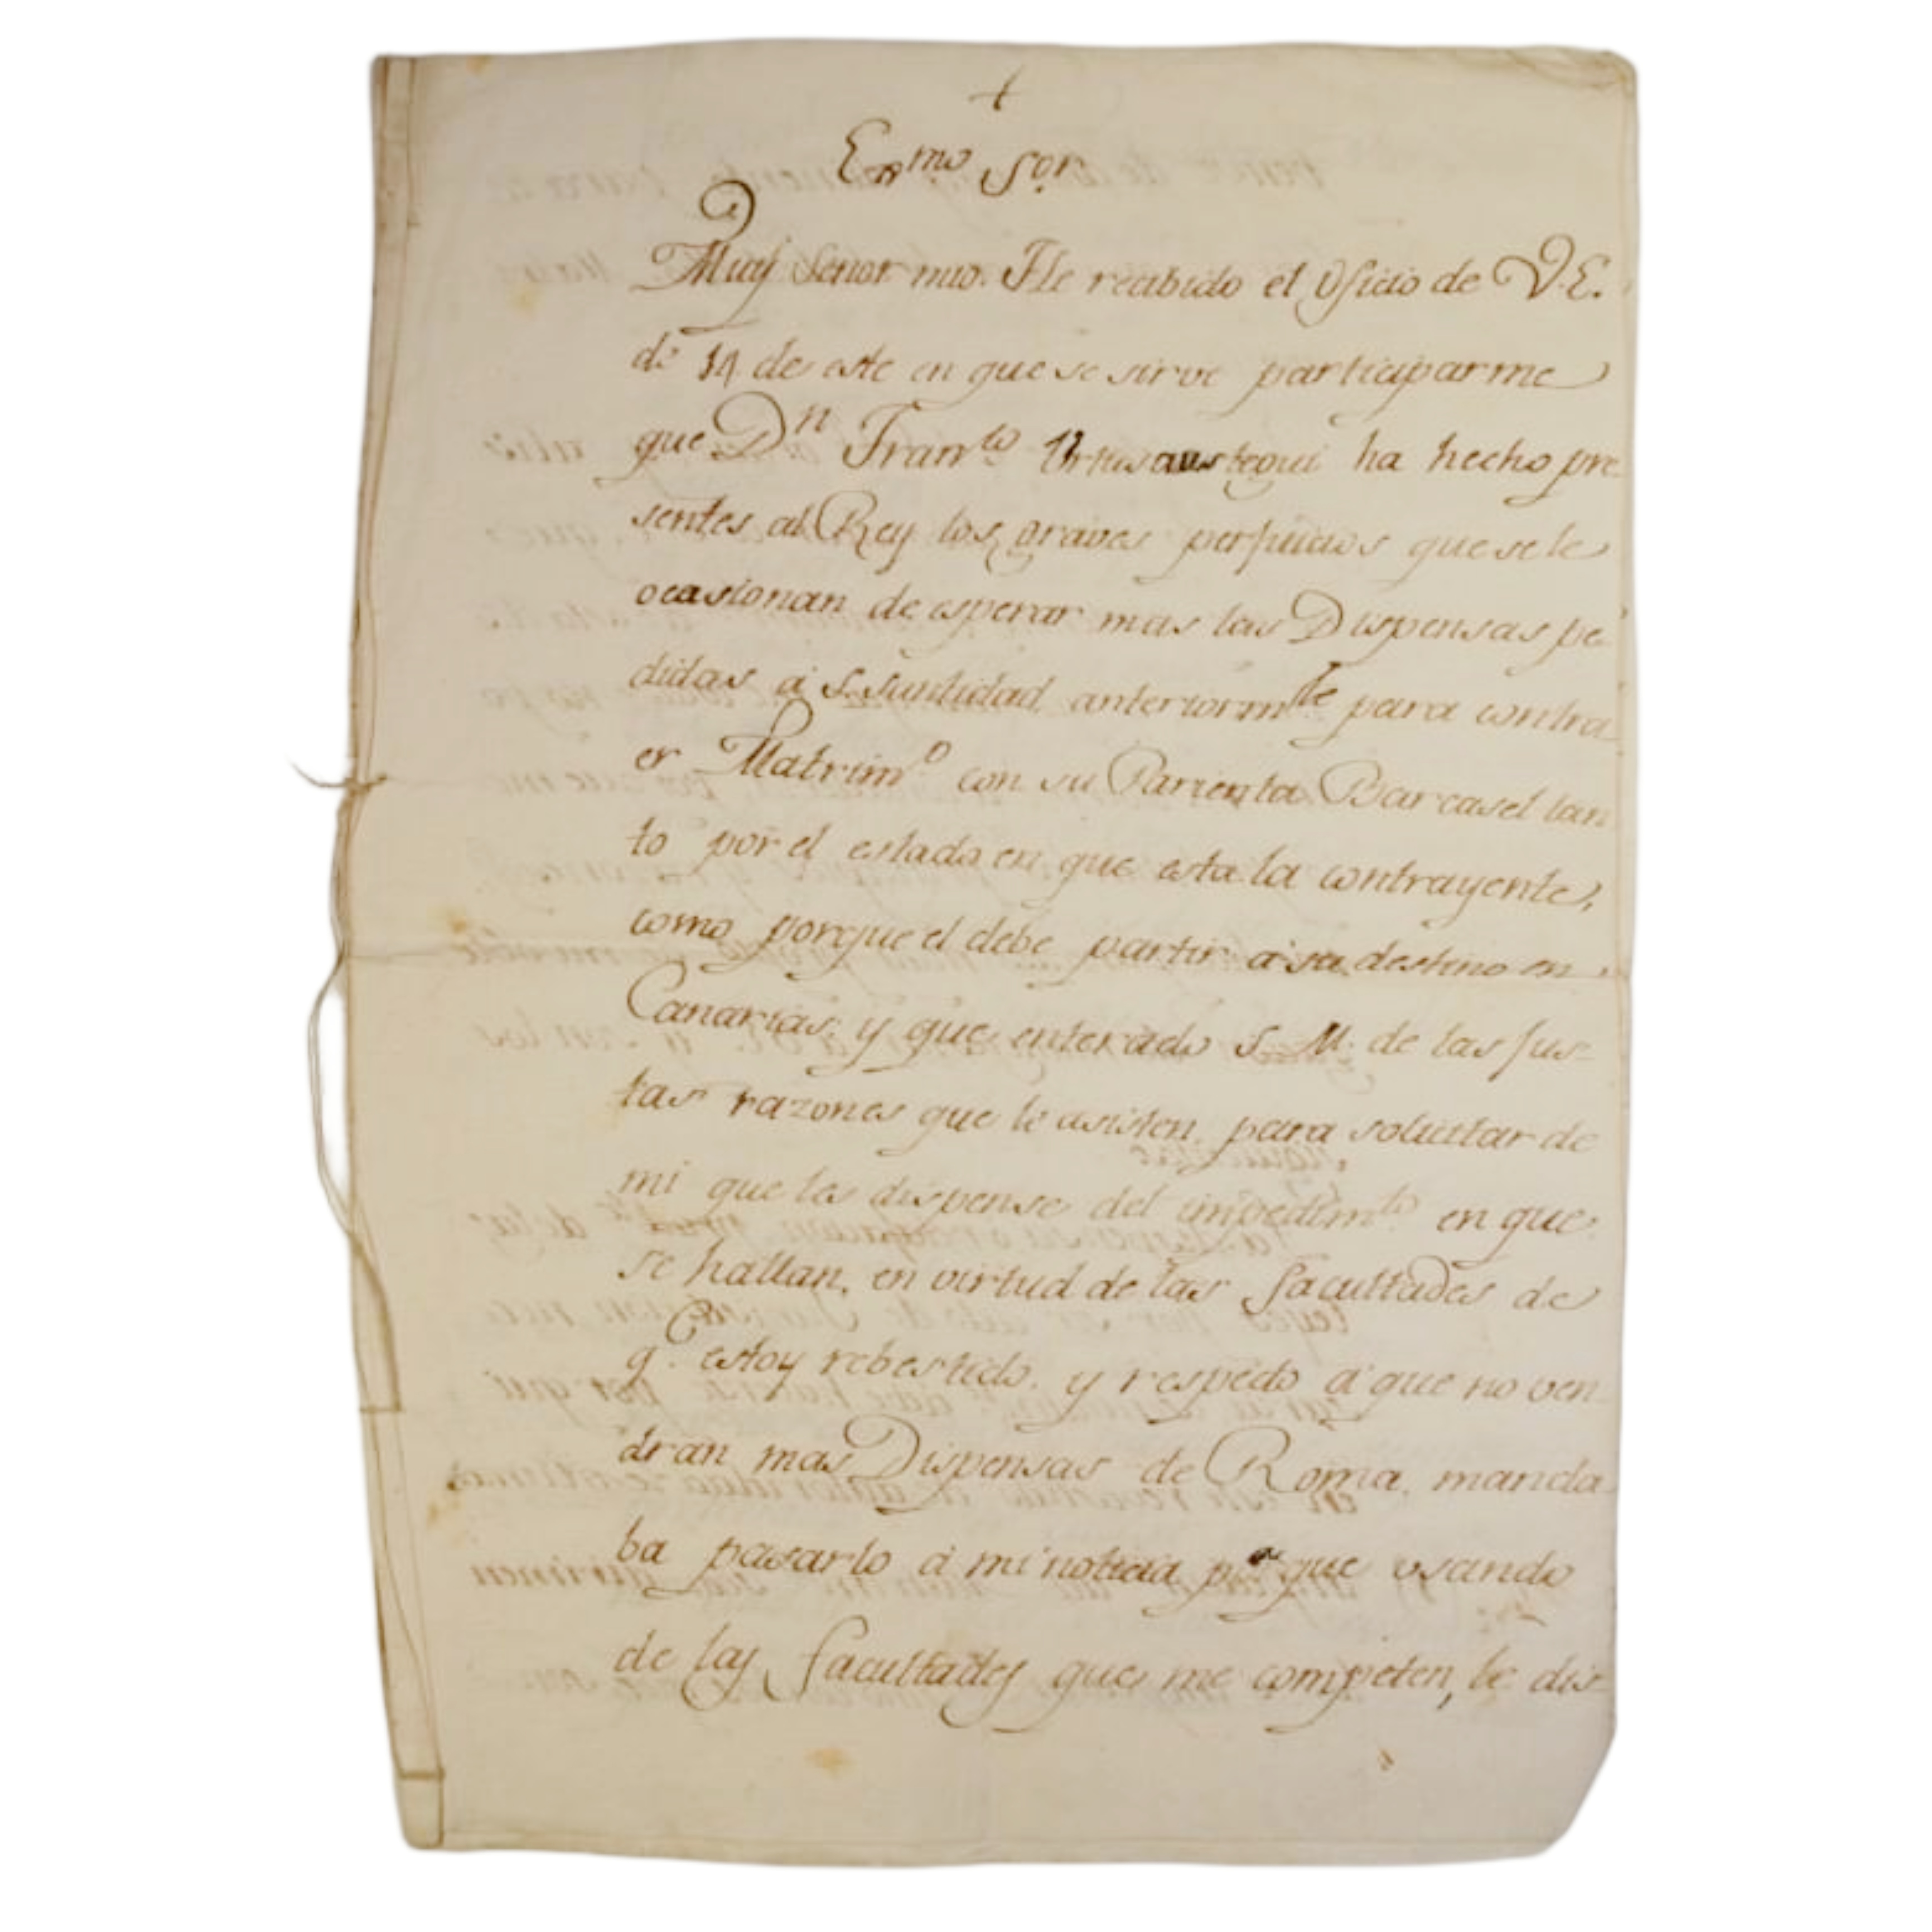 +
Exmo Sor
Muy Señor mio. He recibido el Oficio de V.E.
de 14 de este en que se sirve participarme
que Dn Franco Urtusaustegui ha hecho pre
sentes al Rey los graves perjuicios que se le
ocasionan de esperar mas las Dispensas pe
didas á S. Santidad anteriormte para contra
er Matrimo con su Parienta Barcasel tan
to por el estado en que esta la contrayente,
como porque el debe partir a su destino en
Canarias, y que enterado S. M. de las jus-
tas razones que le asisten para solicitar de
mi que les dispense del impedimto en que
se hallan, en virtud de las facultades de
qe estoy rebestido, y respecto á que no ven
dran mas Dispensas de Roma, manda
ba pasarlo á mi noticia pa que usando
de las facultades que me competen, le dis-